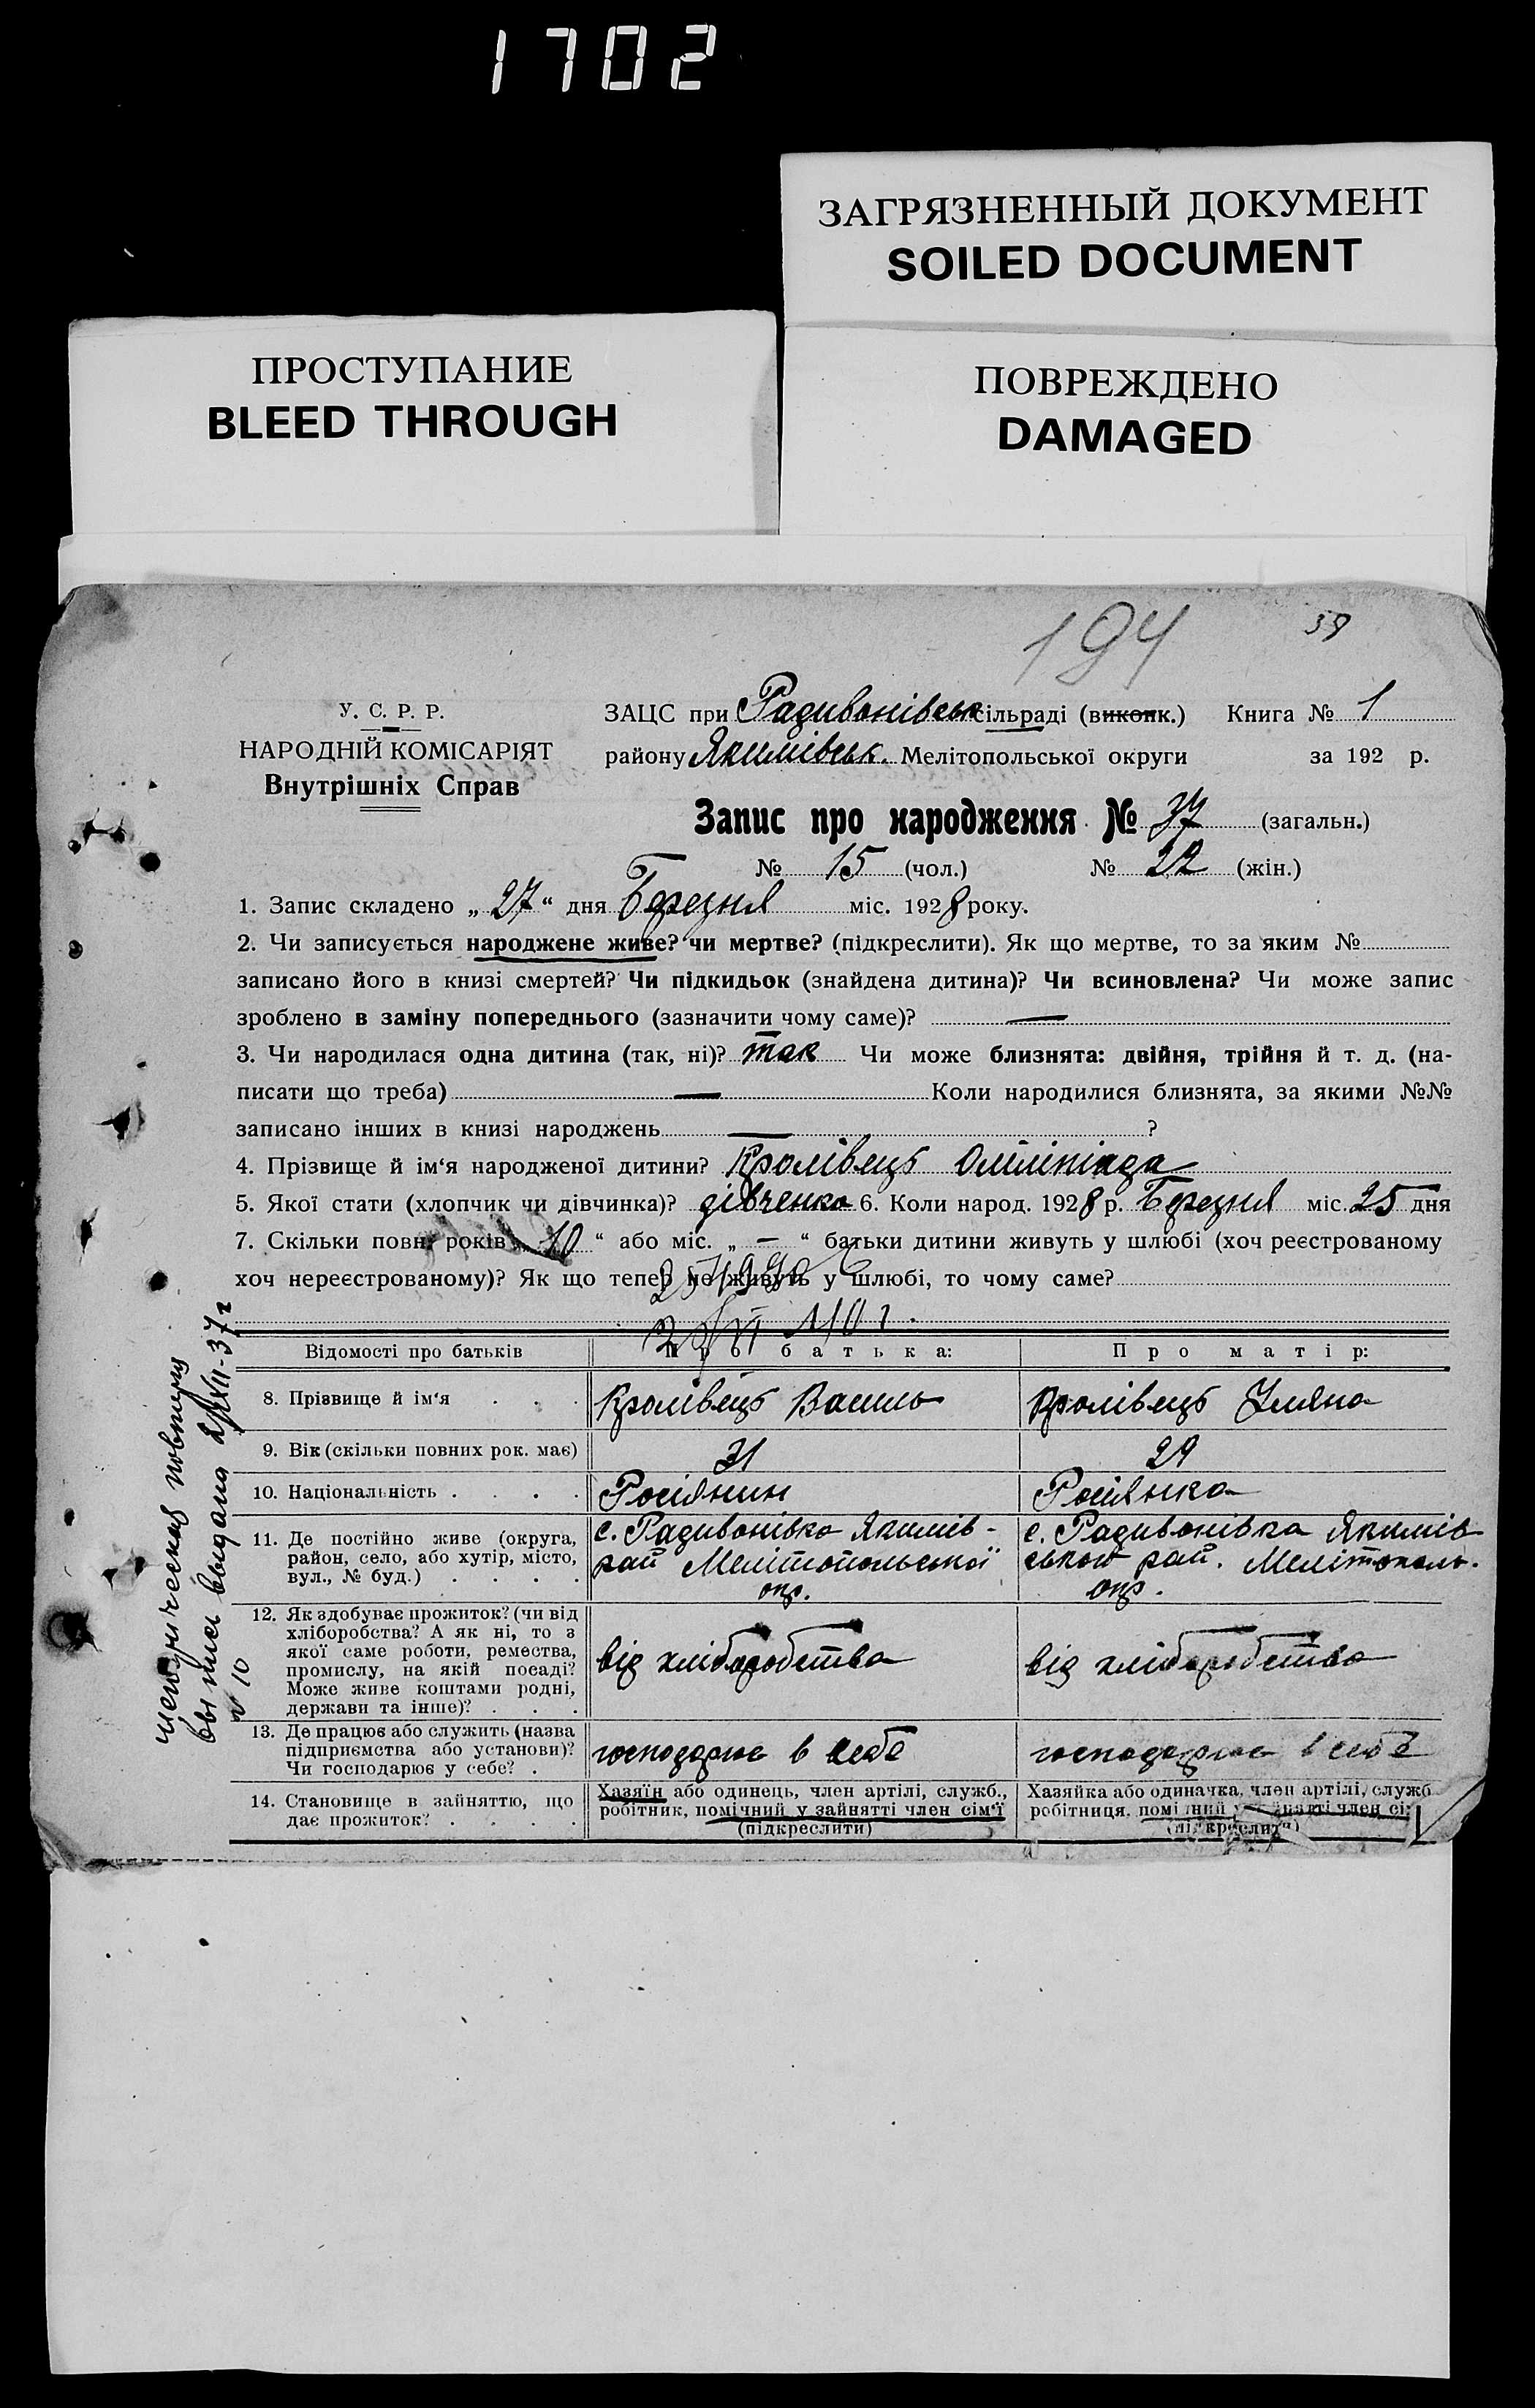 1702
ЗАГРЯЗНЕННЫЙ ДОКУМЕНТ
SOILED DOCUMENT
ПРОСТУПАНИЕ
BLEED THROUGH
ПОВРЕЖДЕНО
DAMAGED
194
У. С. Р. Р.
НАРОДНІЙ КОМІСАРІЯТ
Внутрішніх Справ
ЗАЦС при Радивонівськ сільраді (виконк.) Книга № 1
району Якимівськ. Мелітопольської округи за 192 р.
Запис про народження № 37 (загальн.)
№ 15 (чол.) № 22 (жін.)
1. Запис складено „ 27 “ дня Березня міс. 1928 року.
2. Чи записується народжене живе? чи мертве? (підкреслити). Як що мертве, то за яким №
записано його в книзі смертей? Чи підкидьок (знайдена дитина)? Чи всиновлена? Чи може запис
зроблено в заміну попереднього (зазначити чому саме)? —
3. Чи народилася одна дитина (так, ні)? так Чи може близнята: двійня, трійня й т. д. (на-
писати що треба) — Коли народилися близнята, за якими №№
записано інших в книзі народжень — ?
4. Прізвище й ім‘я народженої дитини? Кролівець Олімпіада
5. Якої стати (хлопчик чи дівчинка)? дівченка 6. Коли народ. 1928 р. Березня міс. 25 дня
7. Скільки повн. років „ 10 “ або міс. „ — “ батьки дитини живуть у шлюбі (хоч реєстрованому
хоч нереєстрованому)? Як що тепер не живуть у шлюбі, то чому саме?
Відомості про батьків Про батька: Про матір:
8. Прізвище й ім‘я . . . Кролівець Василь Кролівець Уляна
9. Вік (скільки повних рок. має) 31 29
10. Національність . . . . Росіянин Росіянка
11. Де постійно живе (округа, район, село, або хутір, місто, вул., № буд.) . . . .
с. Радивонівка Якимів-
рай Мелітопольської
окр.
с. Радивонівка Якимів
ського рай. Мелітополь.
окр.
12. Як здобуває прожиток? (чи від
хліборобства? А як ні, то з
якої саме роботи, ремества,
промислу, на якій посаді?
Може живе коштами родні,
держави та інше)? . . .
від хліборобства
від хліборобства
13. Де працює або служить (назва
підприємства або установи)?
Чи господарює у себе? .
господарює в себе
господарює в себе
14. Становище в зайняттю, що
дає прожиток? . . . .
Хазяїн або одинець, член артілі, служб.,
робітник, помічний у зайнятті член сім‘ї
(підкреслити)
Хазяйка або одиначка, член артілі, служб
робітниця,
повторну
выпись выдана 2/XII-37г
№ 10